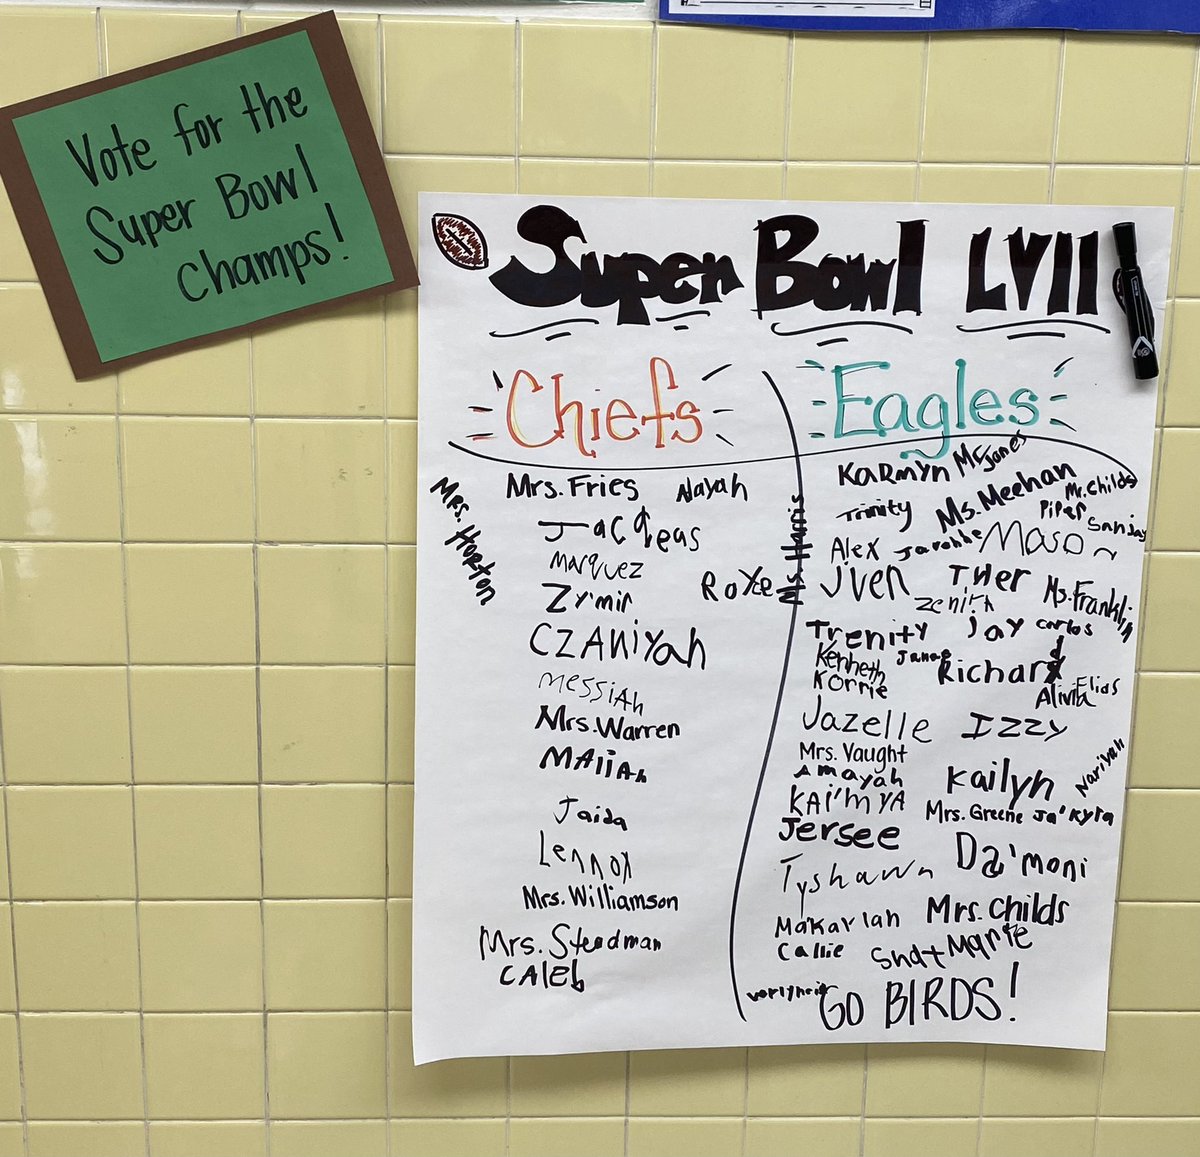 Vote for the
Super Bowl
Champs!
Super Bowl LVII
Chiefs
Mrs. Horton
Mrs. Fries
Jacqeas
Marquez
Royce
Zy'mir
CZANiyah
Messiah
Mrs. Warren
MAliAh
Jaida
Lennox
Mrs. Williamson
Mrs. Steadman
CAleb
Eagles
Ms. Harris
KaRmyn McJones
Trinity Ms. Meehan Mr. Childs
Piper Sanjay
Alex Mason
JVen Tyler Ms. Franklin
zenith
Trenity Jay carlos
Kenneth Richard
Korrie Alivia Elias
Jazelle Izzy
Mrs. Vaught
Amayah Kailyn Nariyah
KAi'mYA Mrs. Greene Ja'Kyra
Jersee
Tyshawn Da'moni
Makarlah Mrs. Childs
Callie
GO BIRDS!